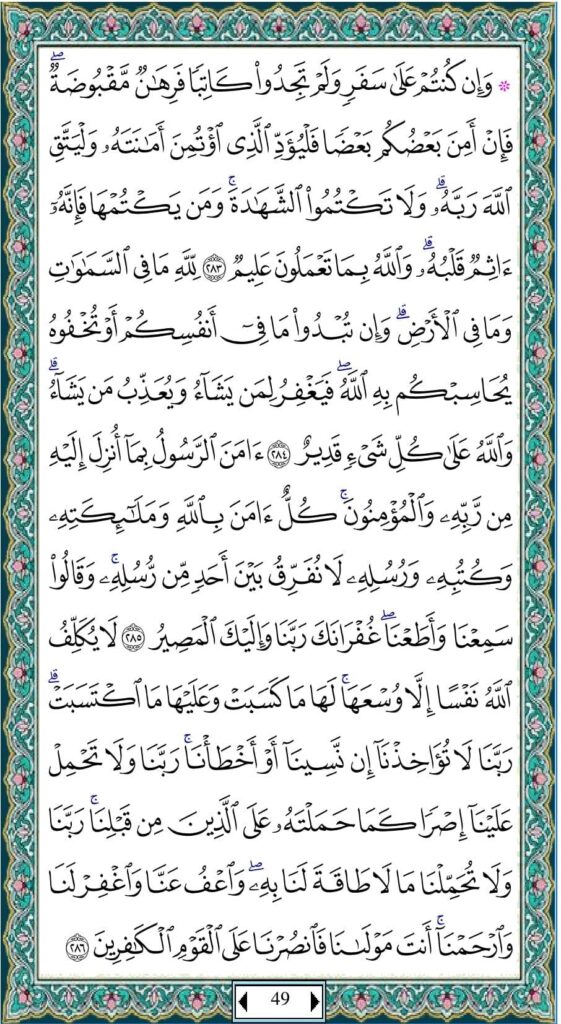 ۞ وَإِن كُنتُمْ عَلَىٰ سَفَرٍ وَلَمْ تَجِدُوا۟ كَاتِبًا فَرِهَـٰنٌ مَّقْبُوضَةٌ ۖ
فَإِنْ أَمِنَ بَعْضُكُم بَعْضًا فَلْيُؤَدِّ ٱلَّذِى ٱؤْتُمِنَ أَمَـٰنَتَهُۥ وَلْيَتَّقِ
ٱللَّهَ رَبَّهُۥ ۗ وَلَا تَكْتُمُوا۟ ٱلشَّهَـٰدَةَ ۚ وَمَن يَكْتُمْهَا فَإِنَّهُۥٓ
ءَاثِمٌ قَلْبُهُۥ ۗ وَٱللَّهُ بِمَا تَعْمَلُونَ عَلِيمٌ ٢٨٣ لِّلَّهِ مَا فِى ٱلسَّمَـٰوَٰتِ
وَمَا فِى ٱلْأَرْضِ ۗ وَإِن تُبْدُوا۟ مَا فِىٓ أَنفُسِكُمْ أَوْ تُخْفُوهُ
يُحَاسِبْكُم بِهِ ٱللَّهُ ۖ فَيَغْفِرُ لِمَن يَشَآءُ وَيُعَذِّبُ مَن يَشَآءُ ۗ
وَٱللَّهُ عَلَىٰ كُلِّ شَىْءٍ قَدِيرٌ ٢٨٤ ءَامَنَ ٱلرَّسُولُ بِمَآ أُنزِلَ إِلَيْهِ
مِن رَّبِّهِۦ وَٱلْمُؤْمِنُونَ ۚ كُلٌّ ءَامَنَ بِٱللَّهِ وَمَلَـٰٓئِكَتِهِۦ
وَكُتُبِهِۦ وَرُسُلِهِۦ لَا نُفَرِّقُ بَيْنَ أَحَدٍ مِّن رُّسُلِهِۦ ۚ وَقَالُوا۟
سَمِعْنَا وَأَطَعْنَا ۖ غُفْرَانَكَ رَبَّنَا وَإِلَيْكَ ٱلْمَصِيرُ ٢٨٥ لَا يُكَلِّفُ
ٱللَّهُ نَفْسًا إِلَّا وُسْعَهَا ۚ لَهَا مَا كَسَبَتْ وَعَلَيْهَا مَا ٱكْتَسَبَتْ ۗ
رَبَّنَا لَا تُؤَاخِذْنَآ إِن نَّسِينَآ أَوْ أَخْطَأْنَا ۚ رَبَّنَا وَلَا تَحْمِلْ
عَلَيْنَآ إِصْرًا كَمَا حَمَلْتَهُۥ عَلَى ٱلَّذِينَ مِن قَبْلِنَا ۚ رَبَّنَا
وَلَا تُحَمِّلْنَا مَا لَا طَاقَةَ لَنَا بِهِۦ ۖ وَٱعْفُ عَنَّا وَٱغْفِرْ لَنَا
وَٱرْحَمْنَآ ۚ أَنتَ مَوْلَىٰنَا فَٱنصُرْنَا عَلَى ٱلْقَوْمِ ٱلْكَـٰفِرِينَ ٢٨٦
49